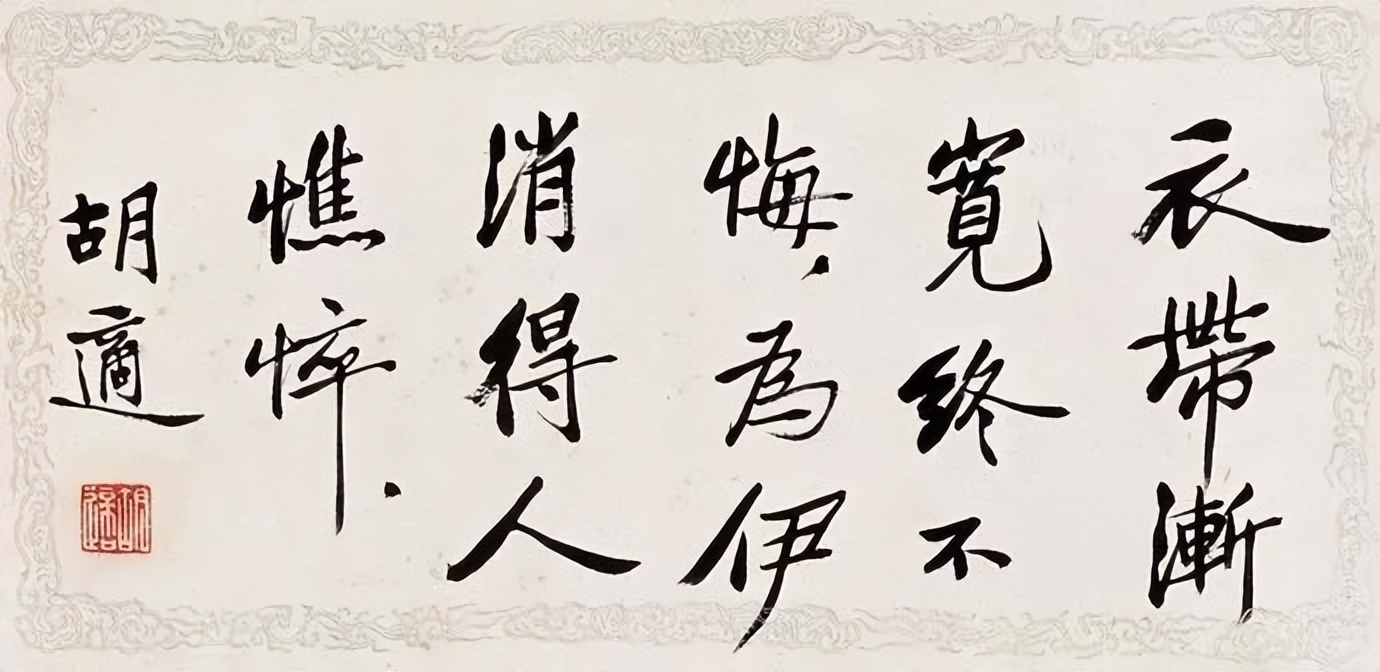 衣帶漸
寬終不
悔.為伊
消得人
憔悴.
胡適
胡適